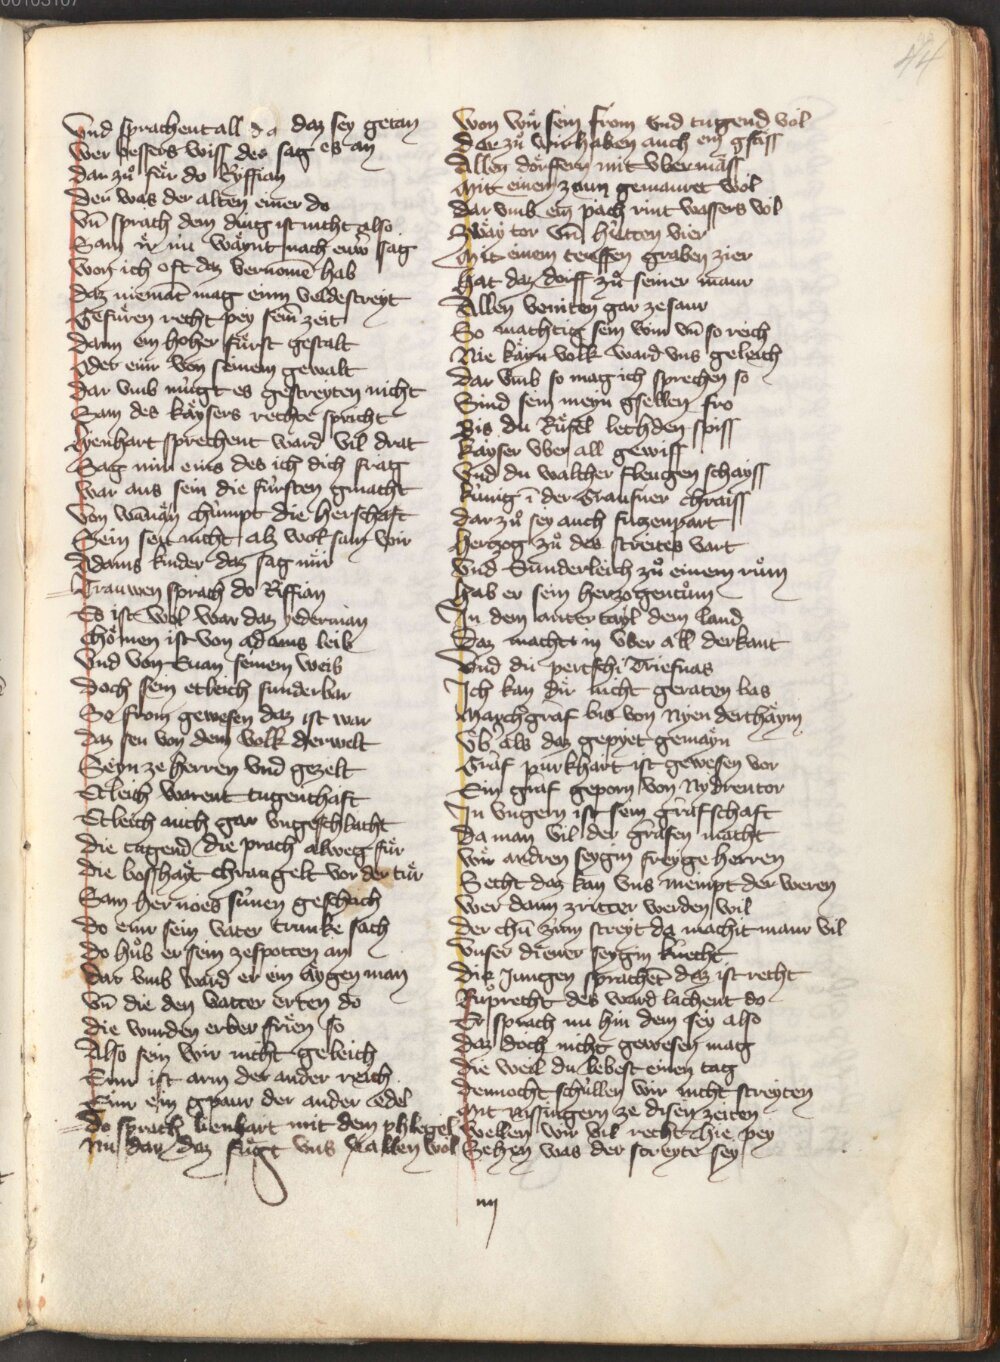 00103107
44
Vnd sprachent all da daz sey getan
Wer bessers wiss der sag es an
Dar zuͦ fuͤr do Ryffian
Der was der alten einer do
Vn̄ sprach dem ding ist nicht also
Sam ir nu waͤnt nach euwͥ sag
Won ich oft daz vernome hab
Daz niemāt mag einn veldestreyt
Gefuͤren recht pey sein zeit
Dann ein hoher fuͤrst gestalt
Oder einr von seinem gewalt
Dar vmb muͤgt es gestreyten nicht
Sam des kaͤysers rechte spricht
Lyenhart sprechent ward vil drat
Sag mir eins des ich dich frag
War aus sein die fuͤrsten gmacht
Von wannan chumpt die herschaft
Sein seu nicht als wol sam wir
Adams kinder daz sag mir
Trauwen sprach do Riffian
Es ist wol war daz yederman
Choͤmen ist von adams leib
Vnd von Euan seinem weib
Doch sein etleich sunderbar
So from gewesen daz ist war
Daz seu von dem volk derwelt
Seyn ze herren vnd gezelt
Etleich warent tugenthaft
Etleich auch gar vngeschlacht
Die tugend die prach alweg fuͤr
Die boshayt chrangelt vor der tuͤr
Sam her noes suͤnen geschach
Do einr sein vater trunke sach
Do huͦb er sein zespotten an
Dar vmb ward er ein aygen man
Vn̄ die den vatter erten do
Die wurden erber frien so
Also sein wir nicht geleich
Einr ist arm der ander reich
Einr ein gpaur der ander edel
Do sprach lienhart mit dem phlegel
Nu dar daz fuͤgt vns allen wol
Won wir sein from vnd tugend vol
Dar zuͦ wir haben auch ein gsaͤss
Allen doͤrffern mit vbermaͤss
Mit einem zaun gemauret wol
Dar vmb ein pach rint wassers vol
Zway tor vn̄ huͤtten vier
Mit einem teuffen graben zier
Hat daz dorff zuͦ seiner maur
Allen veinten gar zesaur
So machtig sein wir vn̄ so reich
Nie kayn volk ward vns geleich
Dar vmb so mag ich sprechen so
Sind sein meyn gsellen fro
Bis du Ruͤfel lechden spiss
Kayser vber all gewiss
Vnd du walcher fleugen schayss
Kuͤnig ī der Grausner chraiss
Dar zuͦ sey auch fuzenpart
Hertzog zuͦ des streites vart
Vnd Sunderleich zuͦ einem ruͦm
Hab er sein herzogentuͦm
In dem lauter tayl dem land
Daz macht in vber all derkant
Vnd du pertschi Triefnas
Ich kan dir nicht geraten bas
Marchgraf bis von Nyenderthaym
Vͤb als daz gepyet gemayn
Graf purkhart ist gewesen vor
Ein graf geporn von Nydrentor
In vngern ist sein grafschaft
Da man vil der grafen macht
Wir andren seygin freyge herren
Secht daz kan vns niempt derweren
Wer dann zritter werden wil
Der chū zum streyt da machit manr vil
Vnser diener seygin knecht
Die Jungen sprachēt daz ist recht
Ruͤprecht des ward lachent do
Er sprach nu hin dem sey also
Daz doch nicht gewesen mag
Die weil du lebest einen tag
Dennocht schuͤllen wir nicht streyten
Mit nissingern ze disen zeiten
Wellen wir vil recht hie pey
Sehen was der streyte sey
iiij